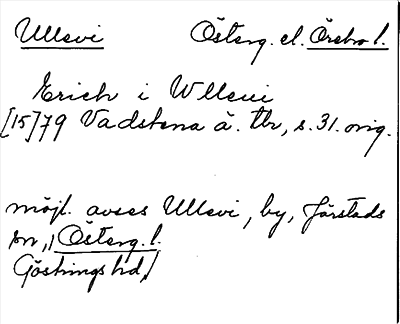 Ullevi Österg. el. Örebro l.
Erich i Wlleui
[15]79 Vadstena ä. tbr, s. 31. orig.
möjl. avses Ullevi, by, Järstads
sn, Österg. l.
Göstrings hd,